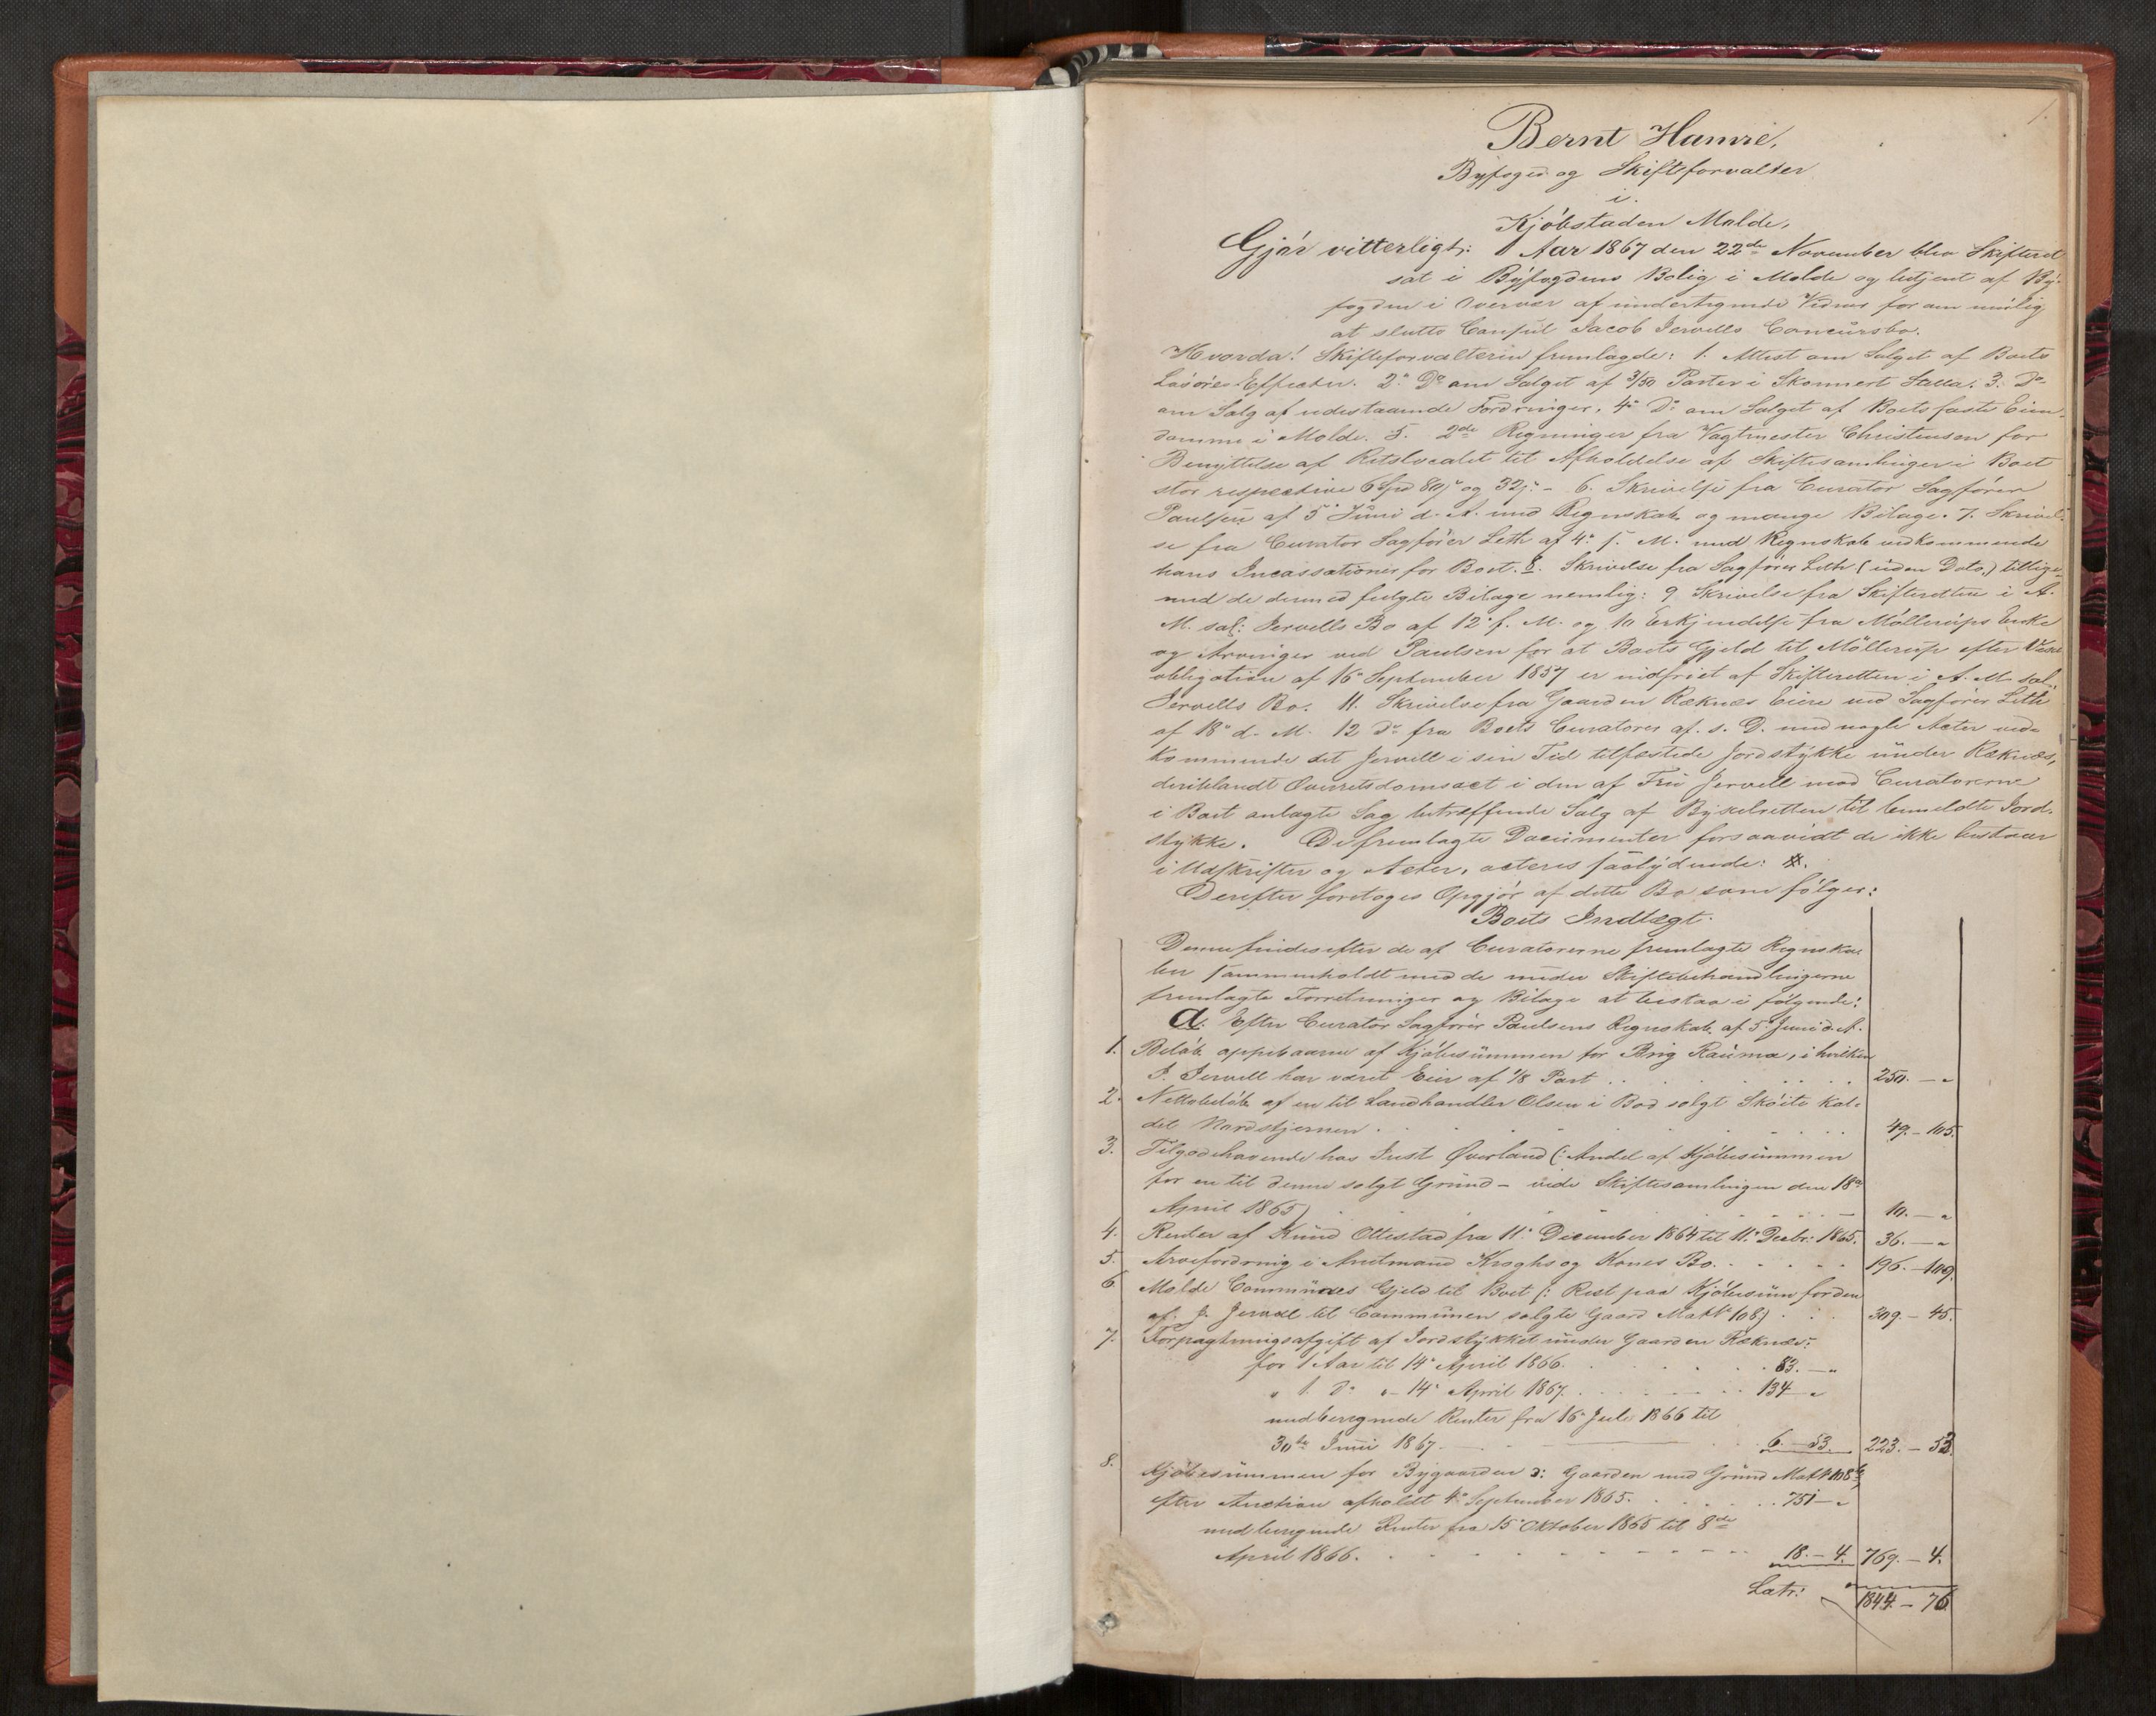 1.
Bernt Hamre,
Byfoged og Skifteforvalter
i.
Kjöbstaden Molde,
Gjör vitterligt: Aar 1867 den 22de November blev Skifteret
sat i Byfogdens Bolig i Molde og betjent af By-
fogden i Overvær af undertegnede Vidner for om mulig
at slutte Consul Jacob Jervells Concursbo.
Hvorda! Skifteforvalteren fremlagde: 1. Attest om Salget af Boets
Lösöre Effecter. 2° Do om Salget af 3/50 Parter i Skonnert Stella. 3. Do
om Salg af udestaaende Fordringer. 4° Do om Salget af Boets faste Eien-
domme i Molde. 5. 2de Regninger fra Vagtmester Christensen for
Benyttelse af Retslocalet til Afholdelse af Skiftesamlinger i Boet
stor respective 6 Spd 80 s og 32 s. - 6. Skrivelse fra Curator Sagförer
Paulsen af 5 Juni d. A. med Regnskab og mange Bilage. 7. Skrivel-
se fra Curator Sagförer Leth af 4° f. M. med Regnskab vedkommende
hans Incassationer for Boet. 8. Skrivelse fra Sagförer Leth (uden Dato) tillige-
med de dermed fulgte Bilage nemlig: 9 Skrivelse fra Skifteretten i A.
M. sal: Jervells Bo af 12° f. M. og 10 Erkjendelse fra Möllerups Enke
og Arvinger ved Paulsen for at Boets Gjeld til Möllerup efter
obligation af 16 September 1857 er indfriet af Skifteretten i A. M. sal.
Jervells Bo. 11. Skrivelse fra Gaarden Reknæs Eiere ved Sagförer Leth
af 18° d. M. 12 Do fra Boets Curatorer af s. D. med nogle Acter ved-
kommende det Jervell i sin Tid tilfæstede Jordstykke under Reknæs,
deriblandt Overretsdomsact i den af Fru Jervell mod Curatorerne
i Boet anlagte Sag betræffende Salg af Byxelretten til bemeldte Jord-
stykke. De fremlagte Documenter forsaavidt de ikke bestaaer
i Udskrifter og Acter, acteres saalydende: #.
Derefter foretoges Opgjör af dette Bo som fölger:
Boets Indtægt.
Denne findes efter de af Curatorerne fremlagte Regnska-
ber sammenholdt med de under Skiftebehandlingerne
fremlagte Forretninger og Bilage at bestaa i fölgende:
a. Efter Curator Sagförer Paulsens Regnskab af 5 Juni d. A.
1. Belöb oppebaaren af Kjöbesummen for Brig Rauma, i hvilken
J. Jervell har været Eier af 1/8 Part . . . 250. - "
2. Nettobelöb af en til Landhandler Olsen i Bod solgt Sköite kal-
det Nordstjernen . . . 49. - 105.
3. Tilgodehavende hos Just Øverland (: Andel af Kjöbesummen
for en til denne solgt Grund - vide Skiftesamlingen den 18de
April 1865) . . . 10. - "
4. Renter af Knud Ottestad fra 11° December 1864 til 11° Decbr: 1865. 36. - "
5. Arvefordring i Amtmand Kroghs og Kones Bo. . . . 196. - 109.
6. Molde Communes Gjeld til Boet (: Rest paa Kjöbesum for den
af J. Jervell til Communen solgte Gaard Matr 108.) . . . 309. - 45.
7. Forpagtningsafgift af Jordstykket under Gaarden Reknæs:
for 1 Aar til 14° April 1866. . . . 83. - "
" 1. Do " - 14° April 1867. . . . 134 - "
med beregnede Renter fra 16 Juli 1866 til
30te Juni 1867. 6. - 53. 223. - 53.
8. Kjöbesummen for Bygaarden ɔ: Gaarden med Grund Matr 108 b,
efter Auction afholdt 4° September 1865. . . . 751 - "
med beregnede Renter fra 15 Oktober 1865 til 8de
April 1866. . . . 18. - 4. 769. - 4.
Latr: 1844. - 76